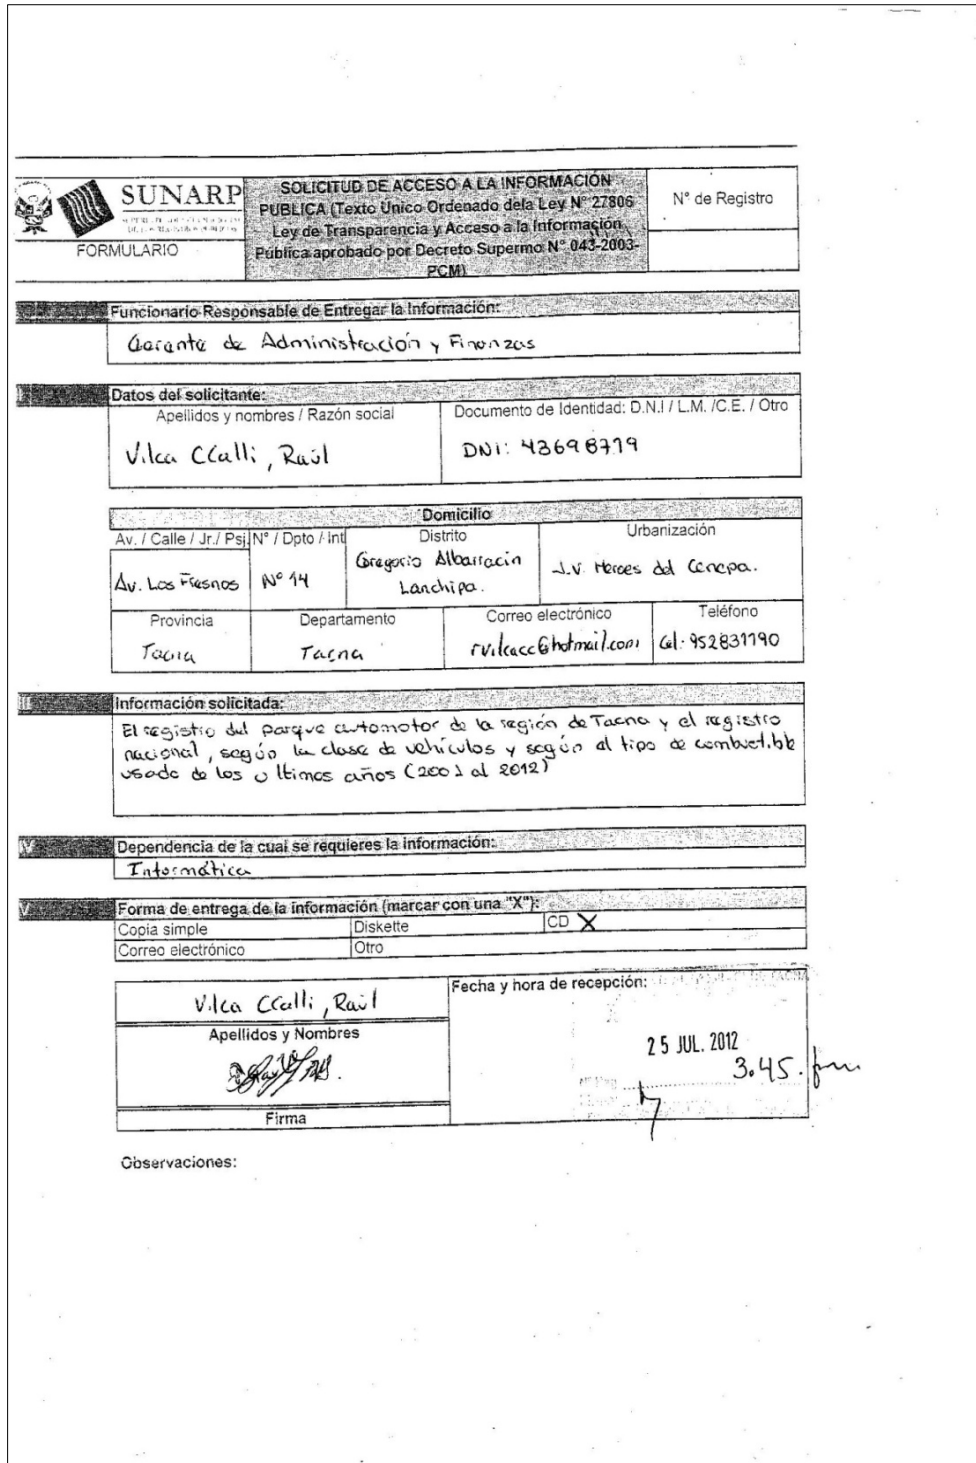 SUNARP
FORMULARIO
SOLICITUD DE ACCESO A LA INFORMACIÓN
PUBLICA (Texto Unico Ordenado dela Ley N° 27806
Ley de Transparencia y Acceso a la Información
Pública aprobado por Decreto Supermo N° 043-2003-
PCM)
N° de Registro
Funcionario Responsable de Entregar la Información:
Gerente de Administración y Finanzas
Datos del solicitante:
Apellidos y nombres / Razón social
Documento de Identidad: D.N.I / L.M. /C.E. / Otro
Vilca CCalli, Raúl
DNI: 43698719
Domicilio
Av. / Calle / Jr./ Psj. N° / Dpto / Int Distrito Urbanización
Av. Los Fresnos
N° 14
Gregorio Albarracin
Lanchipa.
J.V. Heroes del Cenepa.
Provincia Departamento Correo electrónico Teléfono
Tacna Tacna rvilcacc@hotmail.com Cel: 952831190
Información solicitada:
El registro del parque automotor de la región de Tacna y el registro
nacional, según la clase de vehículos y según el tipo de combustible
usado de los ultimos años (2001 al 2012)
V
Dependencia de la cual se requieres la información:
Informática
V
Forma de entrega de la información (marcar con una "X"):
Copia simple Diskette CD X
Correo electrónico Otro
Vilca CCalli, Raúl
Apellidos y Nombres
Firma
Fecha y hora de recepción:
25 JUL. 2012
3.45. pm
Observaciones: